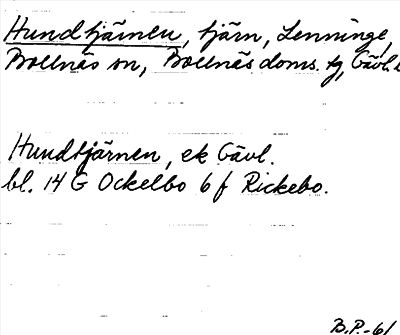 Hundtjärnen, tjärn, Lenninge,
Bollnäs sn, Bollnäs doms. tg, Gävl.
Hundtjärnen, ek Gävl.
bl. 14 G Ockelbo 6 f Rickebo.
B.P.-61